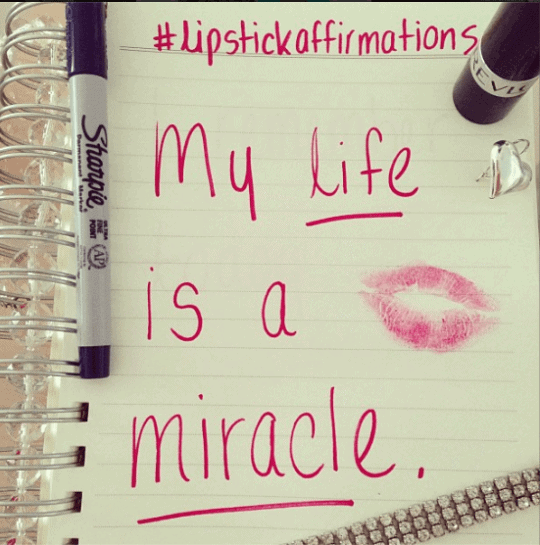 #lipstickaffirmations
REVL
Sharpie
Permanent Marker
ULTRA
FINE
POINT
AP
My life
is a
miracle.